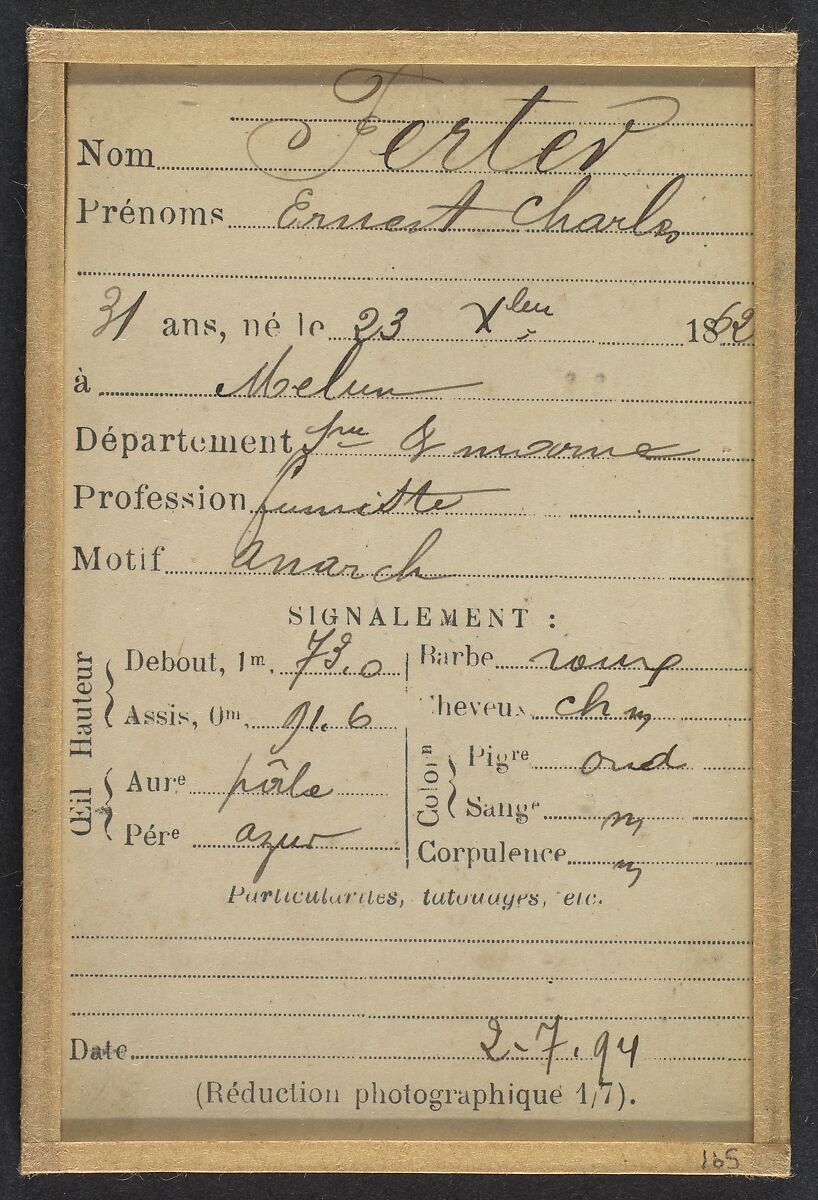 Nom Ferter
Prénoms Ernest Charles
31 ans, né le 23 Xbre 1862
à Melun
Département
Profession fumiste
Motif anarch
SIGNALEMENT :
Hauteur
Debout, 1m, 73.0
Assis, 0m, 91.6
Œil
Aure pâle
Pére azur
Barbe roux
Cheveux ch m
Colorn
Pigre
Sange m
Corpulence m
Particularités, tatouages, etc.
Date 2-7.94
(Réduction photographique 1/7).
165